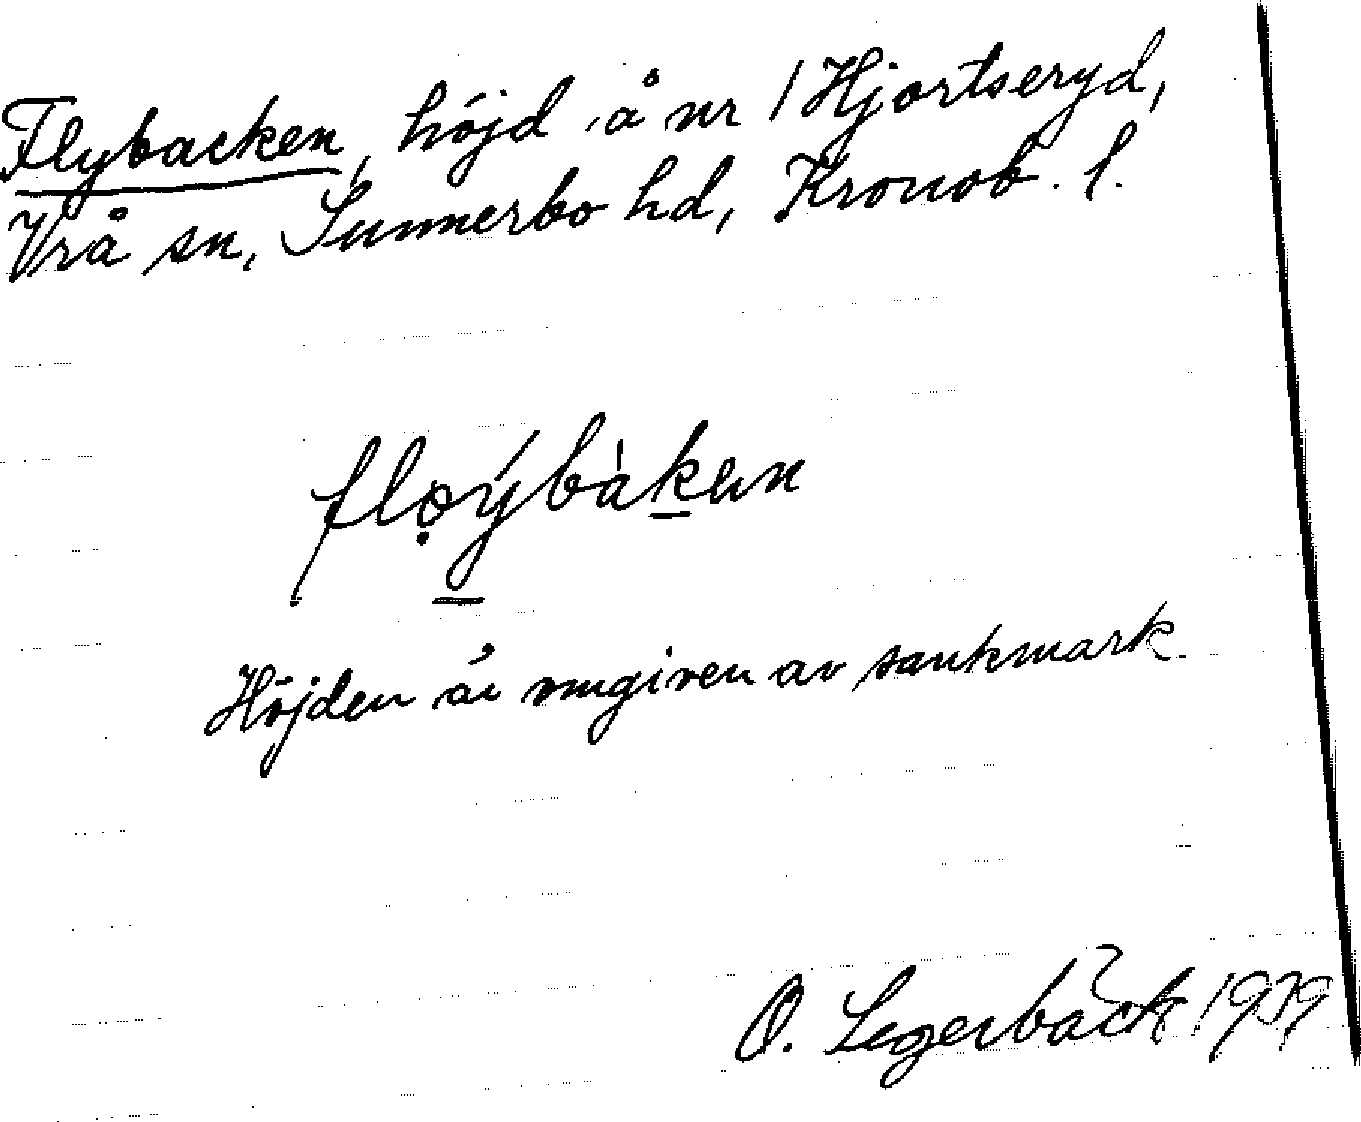 Flybacken, höjd å nr 1 Hjortseryd,
Vrå sn, Sunnerbo hd, Kronob. l.
flo̤ýbàken
Höjden är omgiven av sankmark.
O. Segerbäck 1939